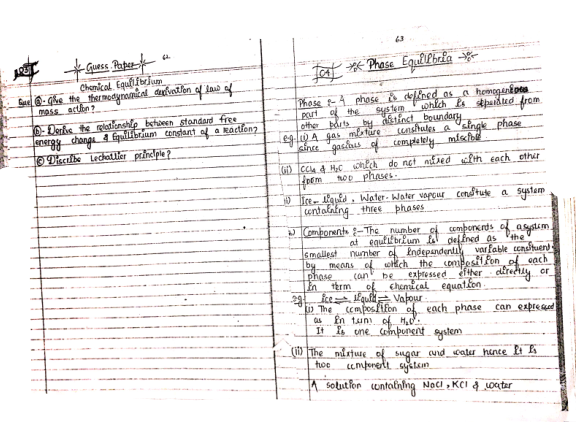 62
Guess Paper
Chemical Equilibrium
Que (a)- Give the thermodynamical derivation of law of
mass action?
(b)- Derive the relationship between standard free
energy change & Equilibrium constant of a reaction?
(c) Describe Lechatlier principle?
63
04 Phase Equilibria
Phase :- A phase is defined as a homogeneous
part of the system which is separated from
other parts by distinct boundary.
eg. (i) A gas mixture consitutes a single phase
since gasious of completely miscible
(ii) CCl4 & H2O which do not mixed with each other
form two phases.
Ice- liquid, Water- Water vapour constitute a system
containing three phases
Components :- The number of components of a system
at equilibrium is defined as the
smallest number of independently variable constituent
by means of which the composition of each
phase can be expressed either directly or
in term of chemical equation.
eg:- Ice ⇌ liquid ⇌ Vapour
(i) The composition of each phase can expressed
as in tums of H2O.
It is one component system
(ii) The mixture of sugar and water hence it is
two component system
A solution containing NaCl, KCl & water